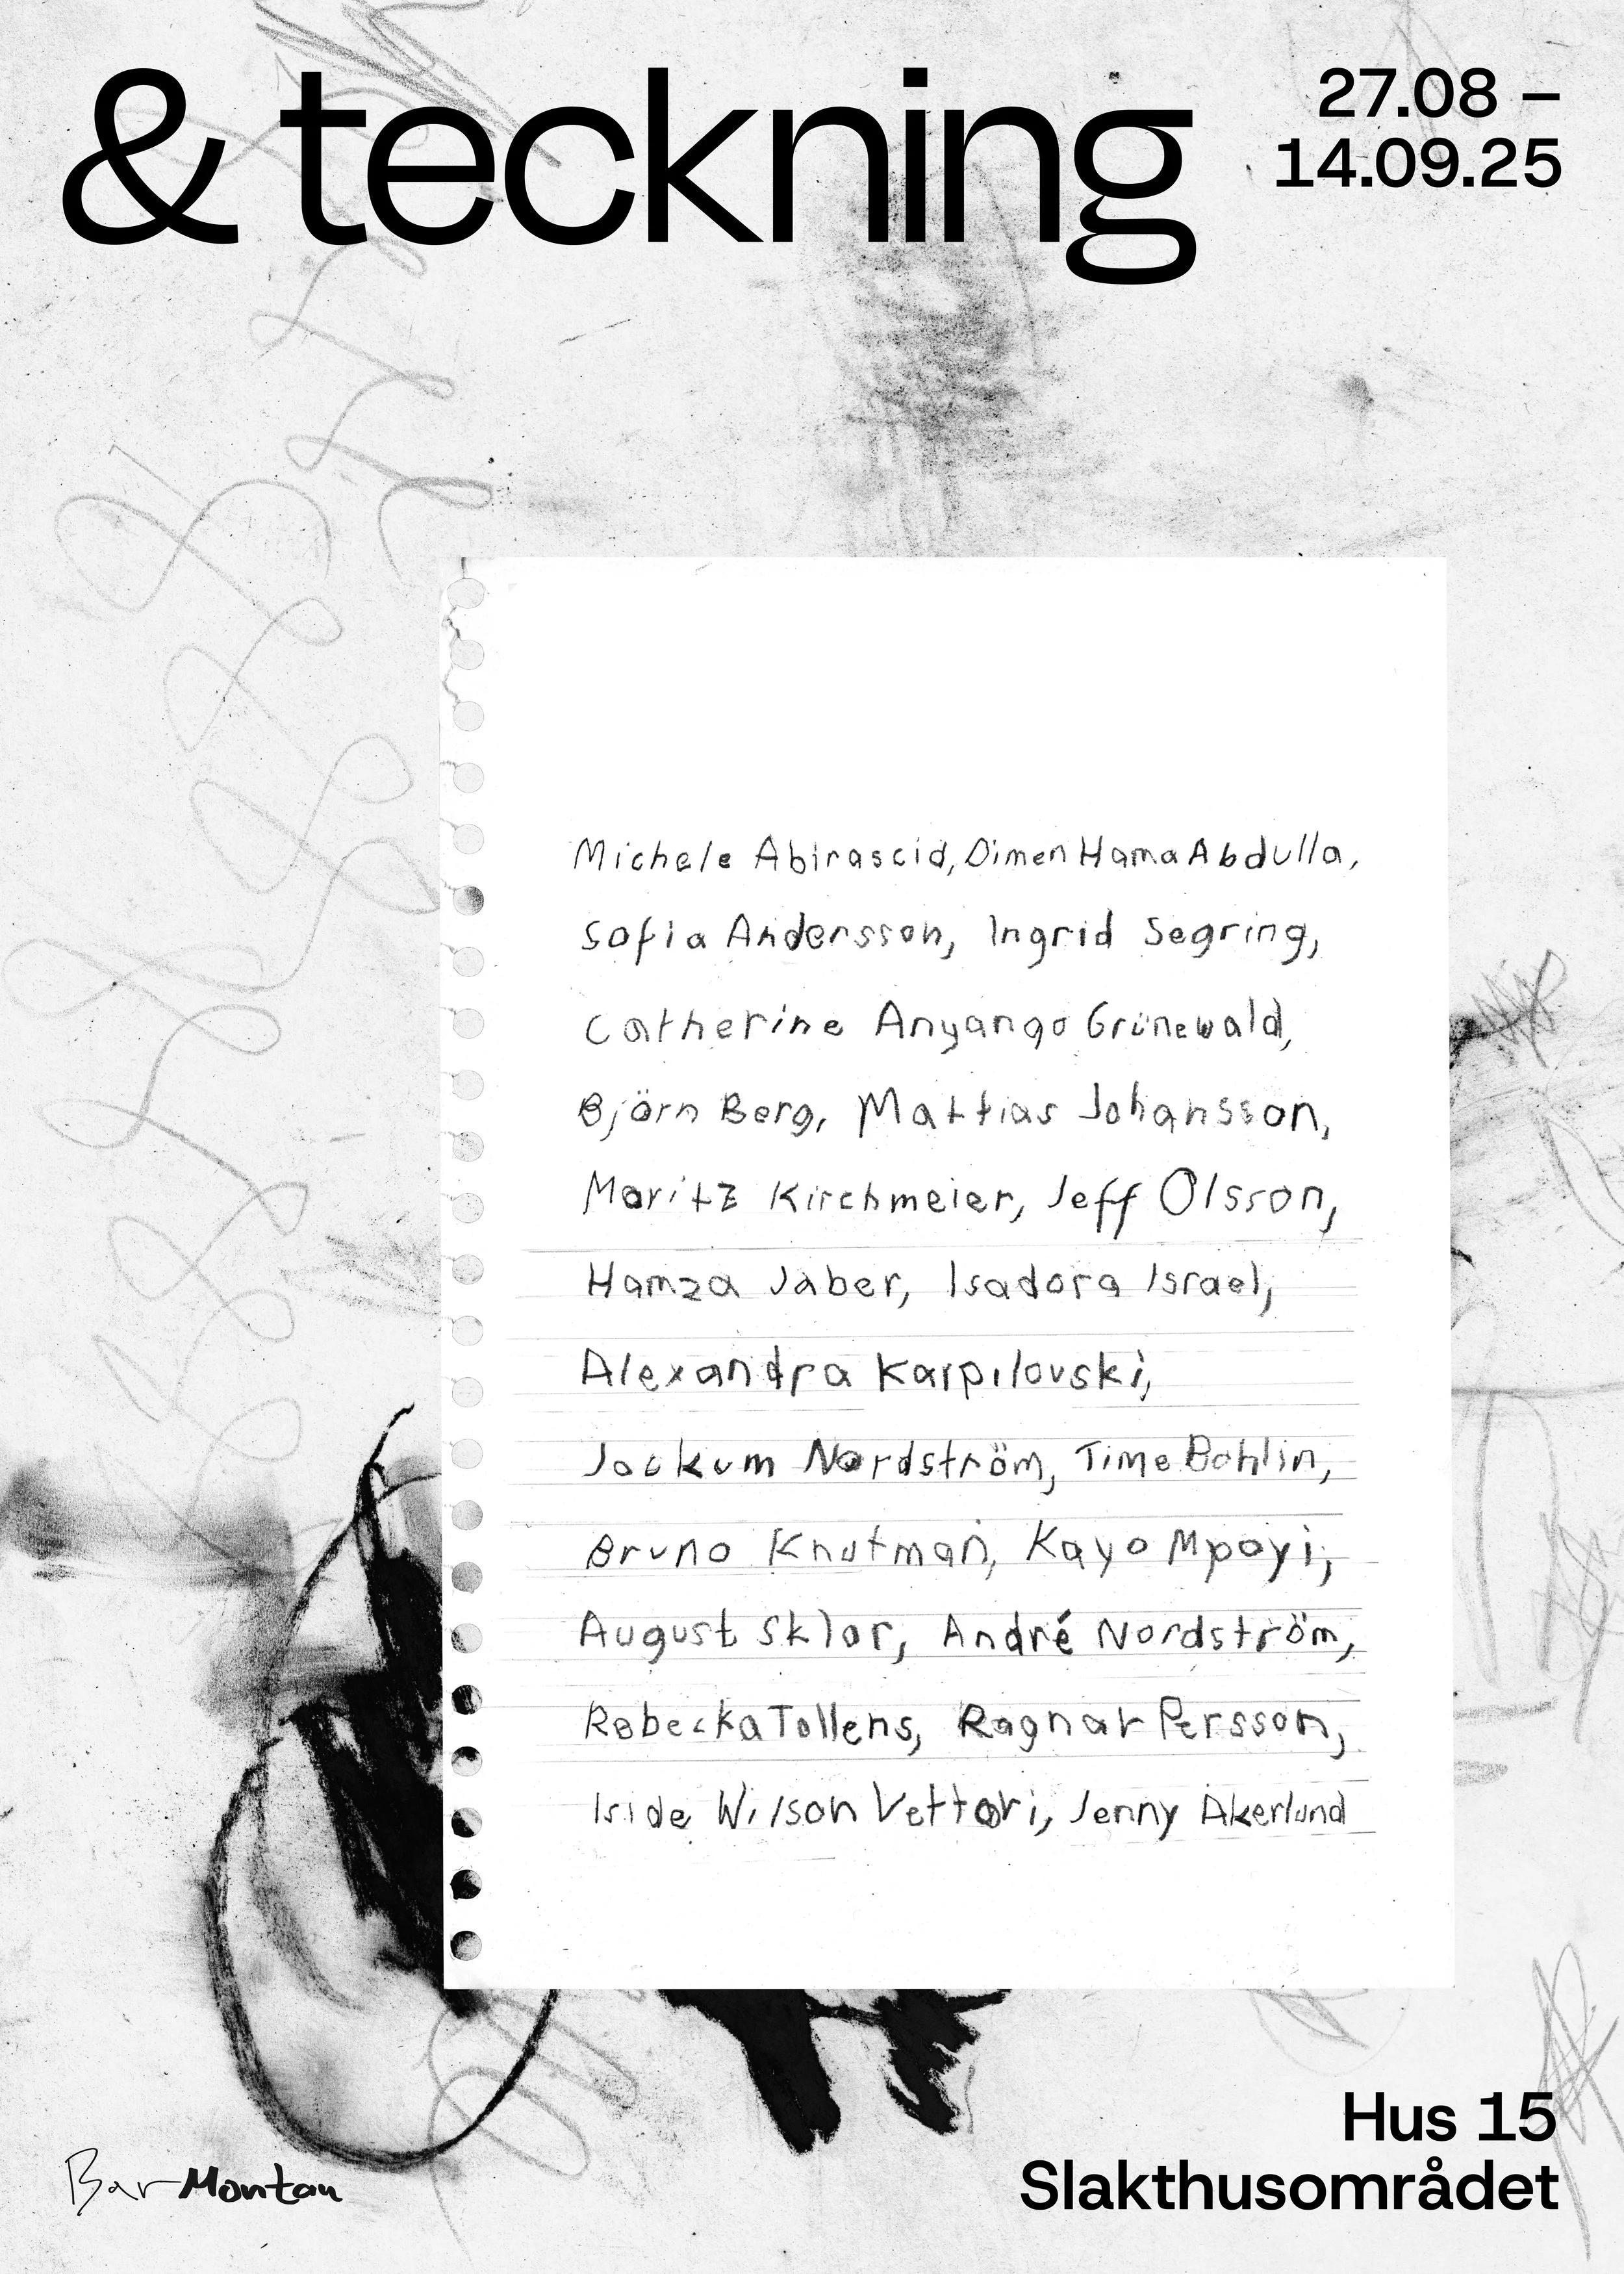 & teckning
27.08 –
14.09.25
Michele Abirascid, Dimen Hama Abdulla,
Sofia Andersson, Ingrid Segring,
Catherine Anyango Grünewald,
Björn Berg, Mattias Johansson,
Moritz Kirchmeier, Jeff Olsson,
Hamza Jaber, Isadora Israel,
Alexandra Karpilovski,
Jockum Nordström, Timo Bohlin,
Bruno Knutman, Kayo Mpoyi,
August Sklar, André Nordström,
Rebecka Tollens, Ragnar Persson,
Iside Wilson Vettori, Jenny Åkerlund
Bar Montan
Hus 15
Slakthusområdet